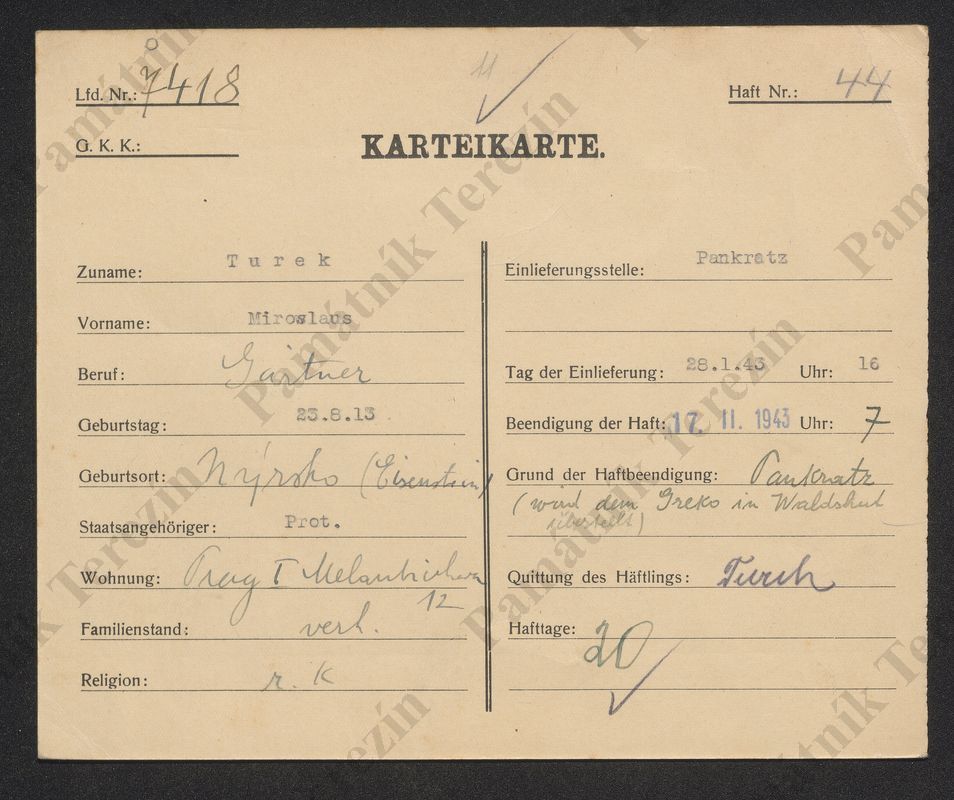 Lfd. Nr.: 7418
11
Haft Nr.: 44
G. K. K.:
KARTEIKARTE.
Zuname: Turek
Vorname: Miroslaus
Beruf: Gärtner
Geburtstag: 23.8.13
Geburtsort: Nýrsko (Eisenstein)
Staatsangehöriger: Prot.
Wohnung: Prag I Melantrichova
12
Familienstand: verh.
Religion: r. K
Einlieferungsstelle: Pankratz
Tag der Einlieferung: 28.1.43 Uhr: 16
Beendigung der Haft: 17. II. 1943 Uhr: 7
Grund der Haftbeendigung: Pankratz
(wird dem Greko in Waldshut
überstellt)
Quittung des Häftlings: Turek
Hafttage: 20
Památník Terezín